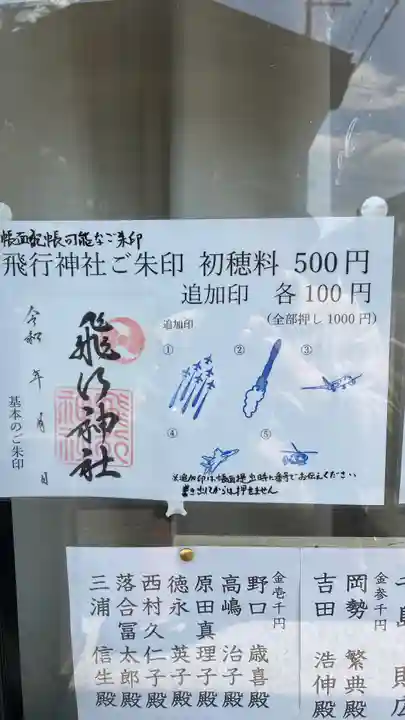 帳面記帳可能なご朱印
飛行神社ご朱印 初穂料 500円
追加印 各100円
(全部押し1000円)
追加印
① ② ③
④ ⑤
令和 年 月 日
飛行神社
基本のご朱印
※追加印は帳面提出時に番号でお伝えください
書き出してからは押せません
金参千円
岡勢 繁典殿
吉田 浩伸殿
金壱千円
野口 歳喜殿
高嶋 治子殿
原田真理子殿
徳永 英子殿
西村久仁子殿
落合冨太郎殿
三浦 信生殿